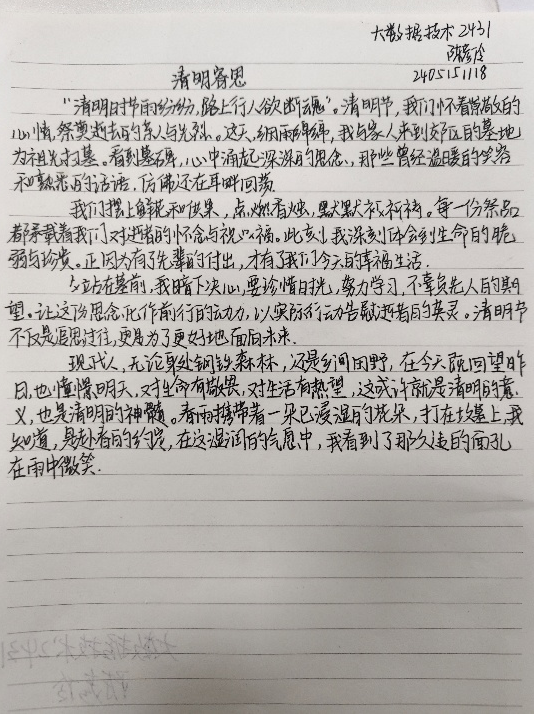 大数据技术2431
陈
2405151118
清明寄思
"清明时节雨纷纷,路上行人欲断魂"。清明节,我们怀着崇敬的
心情,祭奠逝去的亲人与先烈。这天,细雨绵绵,我与家人来到郊区的墓地
为祖先扫墓。看到墓碑,心中涌起深深的思念,那些曾经温暖的笑容
和熟悉的话语,仿佛还在耳畔回荡
我们摆上鲜花和供果,点燃香烛,默默祈祷。每一份祭品
都承载着我们对逝者的怀念与祝福。此刻,我深刻体会到生命的脆
弱与珍贵。正因为有了先辈的付出,才有了我们今天的幸福生活.
站在墓前,我暗下决心,要珍惜时光,努力学习,不辜负先人的期
望。让这份思念化作前行的动力,以实际行动告慰逝者的英灵。清明节
不仅是追思过往,更是为了更好地面向未来.
现代人,无论身处钢铁森林,还是乡间田野,在今天既回望昨
日,也憧憬明天,对生命有敬畏,对生活有热望,这或许就是清明的意
义,也是清明的神髓。春雨携带着一朵已浸湿的花朵,打在坟墓上,我
知道,是赴春的约定,在这湿润的气息中,我看到了那久违的面孔
在雨中微笑.
大数据技术2431